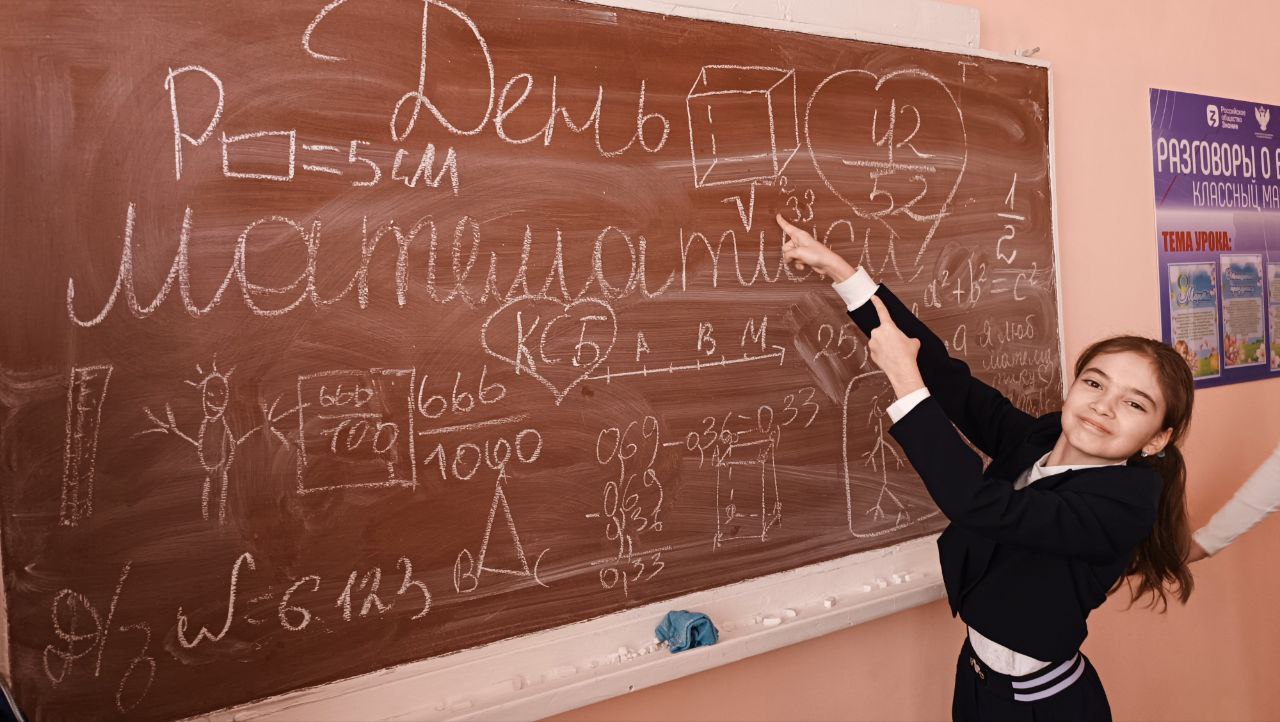 День
P▭=5см
42
52
1
2
√33
Математики
a²+b²=c²
КСБ
А В М
25
9
Я люб
матема
666
100
666
1000
069-036=0,33
069
-
036
0,33
В С
Д/з
№=6.123
Российское
общество
Знание
РАЗГОВОРЫ О В
КЛАССНЫЙ МА
ТЕМА УРОКА: